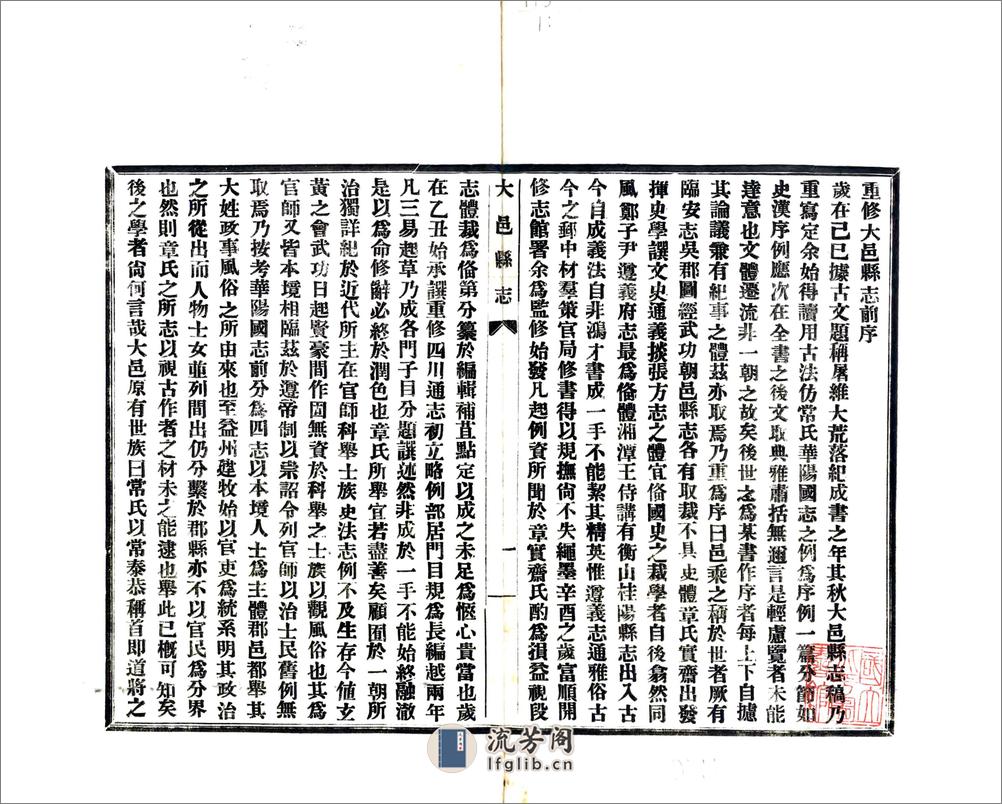 重修大邑縣志前序
歲在己巳據古文題稱屠維大荒落紀成書之年其秋大邑縣志稿乃
重寫定余始得讀用古法仿常氏華陽國志之例爲序例一篇分節如
史漢序例應次在全書之後文取典雅肅括無邇言是輕慮覽者未能
達意也文體遷流非一朝之故矣後世之爲某書作序者每上下自據
其論議兼有紀事之體茲亦取焉乃重爲序曰邑乘之稱於世者厥有
臨安志吳郡圖經武功朝邑縣志各有取裁不具史體章氏實齋出發
揮史學譔文史通義掞張方志之體宜俻國史之裁學者自後翕然同
風鄭子尹遵義府志最爲俻體湘潭王侍講有衡山桂陽縣志出入古
今自成義法自非鴻才書成一手不能絜其精英惟遵義志通雅俗古
今之郵中材羣策官局修書得以規撫尙不失繩墨辛酉之歲富順開
修志館署余爲監修始發凡起例資所聞於章實齋氏酌爲損益視段
大邑縣志
一
志體裁爲俻第分纂於編輯補苴點定以成之未足爲愜心貴當也歲
在乙丑始承譔重修四川通志初立略例部居門目規爲長編越兩年
凡三易起草乃成各門子目分題譔述然非成於一手不能始終融澈
是以爲命修辭必終於潤色也章氏所舉宜若盡善矣顧囿於一朝所
治獨詳紀於近代所主在官師科舉士族史法志例不及生存今値玄
黃之會武功日起賢豪間作固無資於科舉之士族以觀風俗也其爲
官師又皆本境相臨茲於遵帝制以崇詔令列官師以治士民舊例無
取焉乃按考華陽國志前分爲四志以本境人士爲主體郡邑都舉其
大姓政事風俗之所由來也至益州建牧始以官吏爲統系明其政治
之所從出而人物士女並列間出仍分繫於郡縣亦不以官民爲分界
也然則章氏之所志以視古作者之材未之能逮也舉此已槪可知矣
後之學者尙何言哉大邑原有世族曰常氏以常泰恭稱首即道將之
流芳阁
lfglib.cn